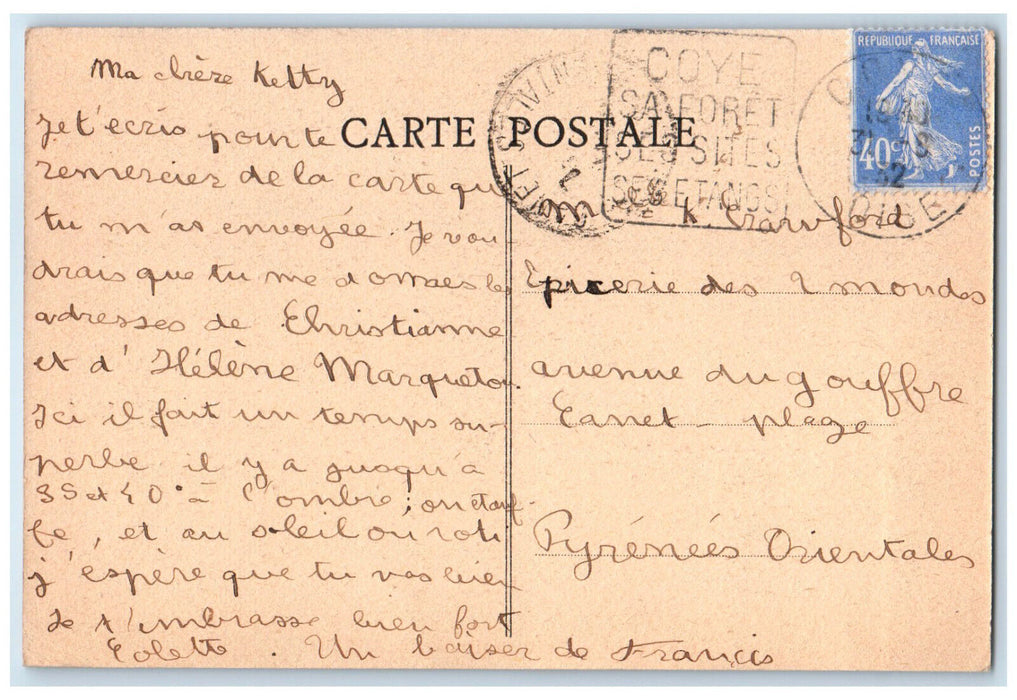 Ma chère Ketty
Je t'écris pour te
remercier de la carte que
tu m'as envoyée. Je vou
drais que tu me donnes les
adresses de Christianne
et d'Hélène Marqueton
Ici il fait un temps su-
perbe il y a jusqu'à
35 et 40° à l'ombre; on étouf-
fe, et au soleil on roti
j'espère que tu vas bien
Je t'embrasse bien fort
Colette. Un baiser de Francis
CARTE POSTALE
COYE
SA FORÊT
SES SITES
SES ETANGS
REPUBLIQUE FRANÇAISE
40c
POSTES
OISE
K. Crawford
Epicerie des 2 mondes
avenue du gouffre
Canet - plage
Pyrénées Orientales